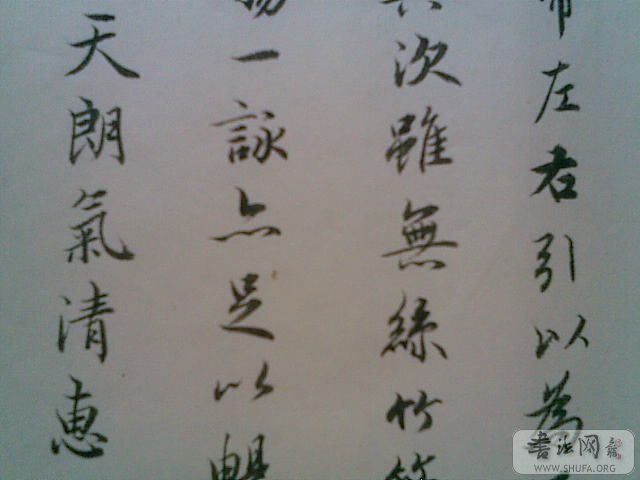 帶左右引以為
其次雖無絲竹管
觴一詠亦足以暢
天朗氣清惠
書法网
WWW.SHUFA.ORG